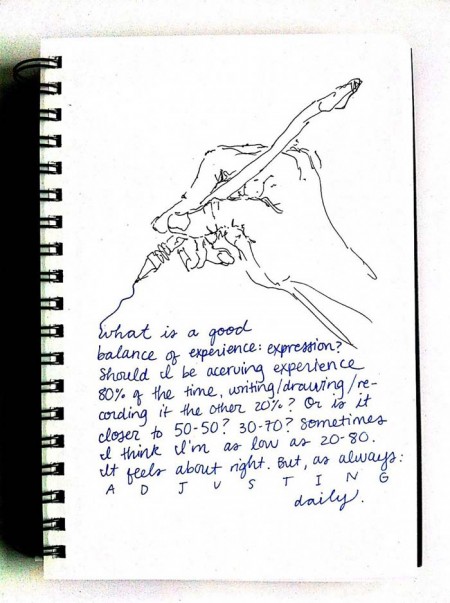 what is a good
balance of experience: expression?
Should I be accruing experience
80% of the time, writing/drawing/re-
cording it the other 20%? Or is it
closer to 50-50? 30-70? Sometimes
I think I'm as low as 20-80.
It feels about right. But, as always:
A D J U S T I N G
daily.